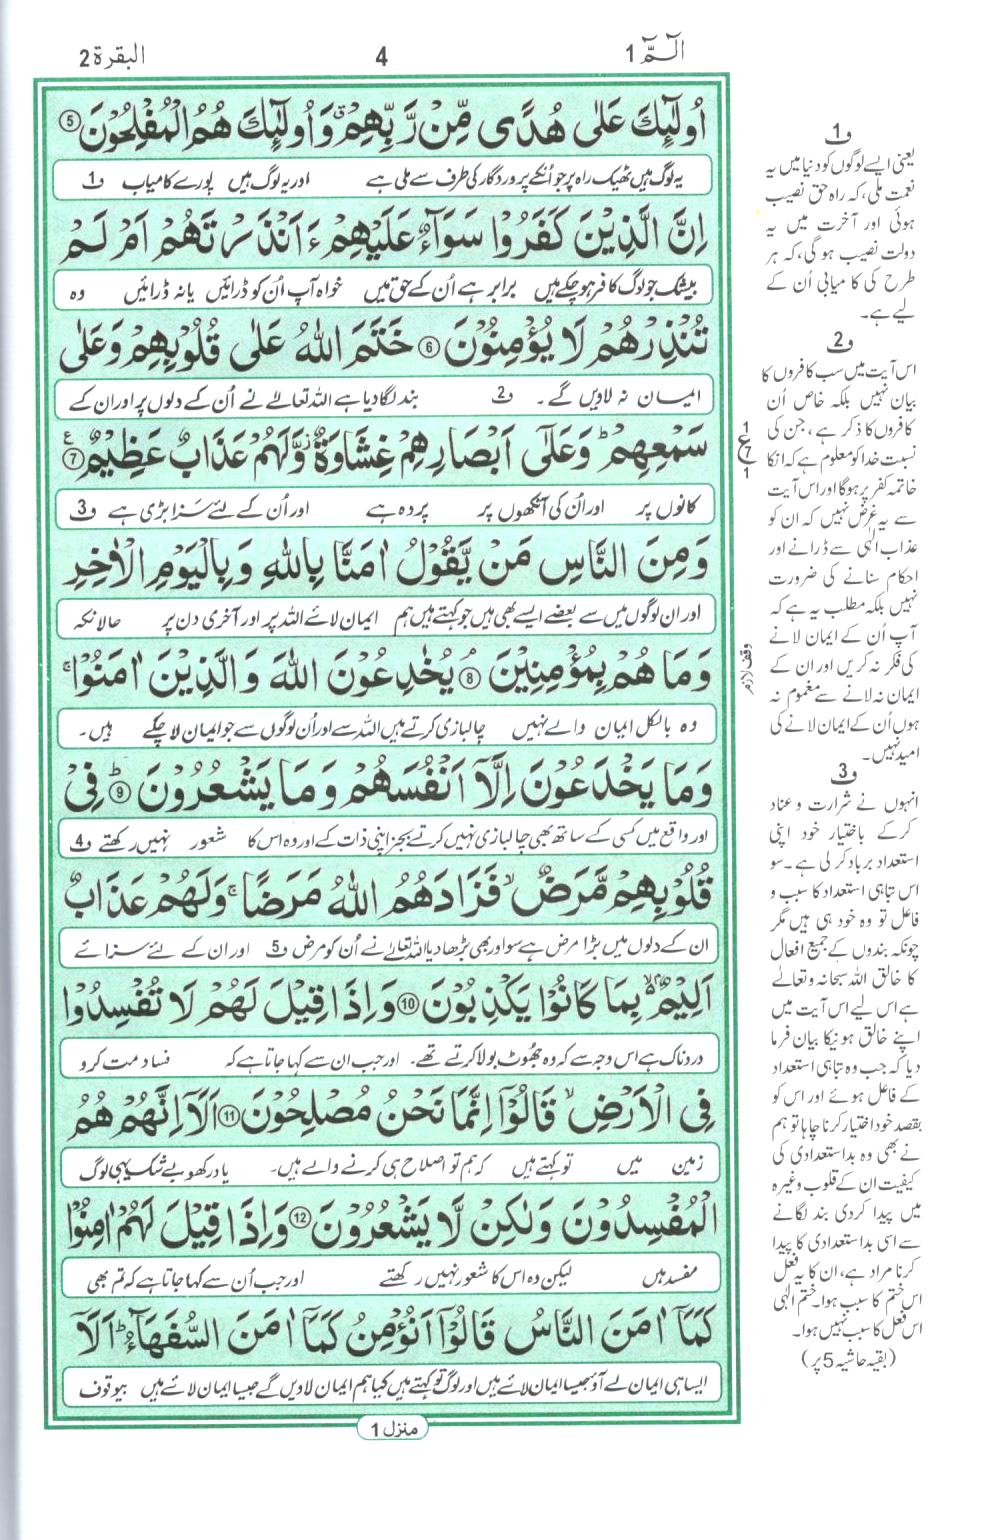 الٓمّٓ 1
4
البقرة 2
اُولٰٓئِكَ عَلٰى هُدًى مِّنْ رَّبِّهِمْ ۗ وَاُولٰٓئِكَ هُمُ الْمُفْلِحُوْنَ ۝5
یہ لوگ ہیں ٹھیک راہ پر جو انکے پروردگار کی طرف سے ملی ہے اور یہ لوگ ہیں پورے کامیاب ف1
اِنَّ الَّذِيْنَ كَفَرُوْا سَوَآءٌ عَلَيْهِمْ ءَاَنْذَرْتَهُمْ اَمْ لَمْ
بیشک جو لوگ کافر ہو چکے ہیں برابر ہے اُن کے حق میں خواہ آپ اُن کو ڈرائیں یا نہ ڈرائیں وہ
تُنْذِرْهُمْ لَا يُؤْمِنُوْنَ ۝6 خَتَمَ اللّٰهُ عَلٰى قُلُوْبِهِمْ وَعَلٰى
ایمان نہ لاویں گے ۔ ف2 بند لگا دیا ہے اللہ تعالےٰ نے اُن کے دلوں پر اور ان کے
سَمْعِهِمْ ؕ وَعَلٰٓى اَبْصَارِهِمْ غِشَاوَةٌ ؗ وَّلَهُمْ عَذَابٌ عَظِيْمٌ ۝7 ع
کانوں پر اور اُن کی آنکھوں پر پردہ ہے اور اُن کے لئے سزا بڑی ہے ف3
وَمِنَ النَّاسِ مَنْ يَّقُوْلُ اٰمَنَّا بِاللّٰهِ وَبِالْيَوْمِ الْاٰخِرِ
اور ان لوگوں میں سے بعضے ایسے بھی ہیں جو کہتے ہیں ہم ایمان لائے اللہ پر اور آخری دن پر حالانکہ
وَمَا هُمْ بِمُؤْمِنِيْنَ ۝8 يُخٰدِعُوْنَ اللّٰهَ وَالَّذِيْنَ اٰمَنُوْا ۚ
وہ بالکل ایمان والے نہیں چالبازی کرتے ہیں اللہ سے اور اُن لوگوں سے جو ایمان لا چکے ہیں۔
وَمَا يَخْدَعُوْنَ اِلَّآ اَنْفُسَهُمْ وَمَا يَشْعُرُوْنَ ۝9 ؕ فِيْ
اور واقع میں کسی کے ساتھ بھی چالبازی نہیں کرتے بجز اپنی ذات کے اور وہ اس کا شعور نہیں رکھتے ف4
قُلُوْبِهِمْ مَّرَضٌ ۙ فَزَادَهُمُ اللّٰهُ مَرَضًا ۚ وَلَهُمْ عَذَابٌ
ان کے دلوں میں بڑا مرض ہے سو اور بھی بڑھا دیا اللہ تعالےٰ نے اُن کو مرض ف5 اور ان کے لئے سزائے
اَلِيْمٌ ۢ ۙ بِمَا كَانُوْا يَكْذِبُوْنَ ۝10 وَاِذَا قِيْلَ لَهُمْ لَا تُفْسِدُوْا
دردناک ہے اس وجہ سے کہ وہ جھوٹ بولا کرتے تھے۔ اور جب ان سے کہا جاتا ہے کہ فساد مت کرو
فِي الْاَرْضِ ۙ قَالُوْٓا اِنَّمَا نَحْنُ مُصْلِحُوْنَ ۝11 اَلَآ اِنَّهُمْ هُمُ
زمین میں تو کہتے ہیں کہ ہم تو اصلاح ہی کرنے والے ہیں۔ یاد رکھو بے شک یہی لوگ
الْمُفْسِدُوْنَ وَلٰكِنْ لَّا يَشْعُرُوْنَ ۝12 وَاِذَا قِيْلَ لَهُمْ اٰمِنُوْا
مفسد ہیں لیکن وہ اس کا شعور نہیں رکھتے اور جب اُن سے کہا جاتا ہے کہ تم بھی
كَمَآ اٰمَنَ النَّاسُ قَالُوْٓا اَنُؤْمِنُ كَمَآ اٰمَنَ السُّفَهَآءُ ؕ اَلَآ
ایسا ہی ایمان لے آؤ جیسا ایمان لائے ہیں اور لوگ تو کہتے ہیں کیا ہم ایمان لاویں گے جیسا ایمان لائے ہیں بیوقوف
منزل 1
1
ع
7
1
وقف لازم
ف1
یعنی ایسے لوگوں کو دنیا میں یہ
نعمت ملی، کہ راہ حق نصیب
ہوئی اور آخرت میں یہ
دولت نصیب ہو گی، کہ ہر
طرح کی کامیابی اُن کے
لیے ہے۔
ف2
اس آیت میں سب کافروں کا
بیان نہیں بلکہ خاص اُن
کافروں کا ذکر ہے، جن کی
نسبت خدا کو معلوم ہے کہ انکا
خاتمہ کفر پر ہوگا اور اس آیت
سے یہ غرض نہیں کہ ان کو
عذاب الٰہی سے ڈرانے اور
احکام سنانے کی ضرورت
نہیں بلکہ مطلب یہ ہے کہ
آپ اُن کے ایمان لانے
کی فکر نہ کریں اور ان کے
ایمان نہ لانے سے مغموم نہ
ہوں اُن کے ایمان لانے کی
امید نہیں۔
ف3
انہوں نے شرارت و عناد
کر کے باختیار خود اپنی
استعداد برباد کر لی ہے۔ سو
اس تباہی استعداد کا سبب و
فاعل تو وہ خود ہی ہیں مگر
چونکہ بندوں کے جمیع افعال
کا خالق اللہ سبحانہ وتعالےٰ
ہے اس لیے اس آیت میں
اپنے خالق ہونیکا بیان فرما
دیا کہ جب وہ تباہی استعداد
کے فاعل ہوئے اور اس کو
بقصد خود اختیار کرنا چاہا تو ہم
نے بھی وہ بداستعدادی کی
کیفیت ان کے قلوب وغیرہ
میں پیدا کردی بند لگانے
سے اسی بداستعدادی کا پیدا
کرنا مراد ہے، ان کا یہ فعل
اس ختم کا سبب ہوا۔ ختم الٰہی
اس فعل کا سبب نہیں ہوا۔
(بقیہ حاشیہ 5 پر)